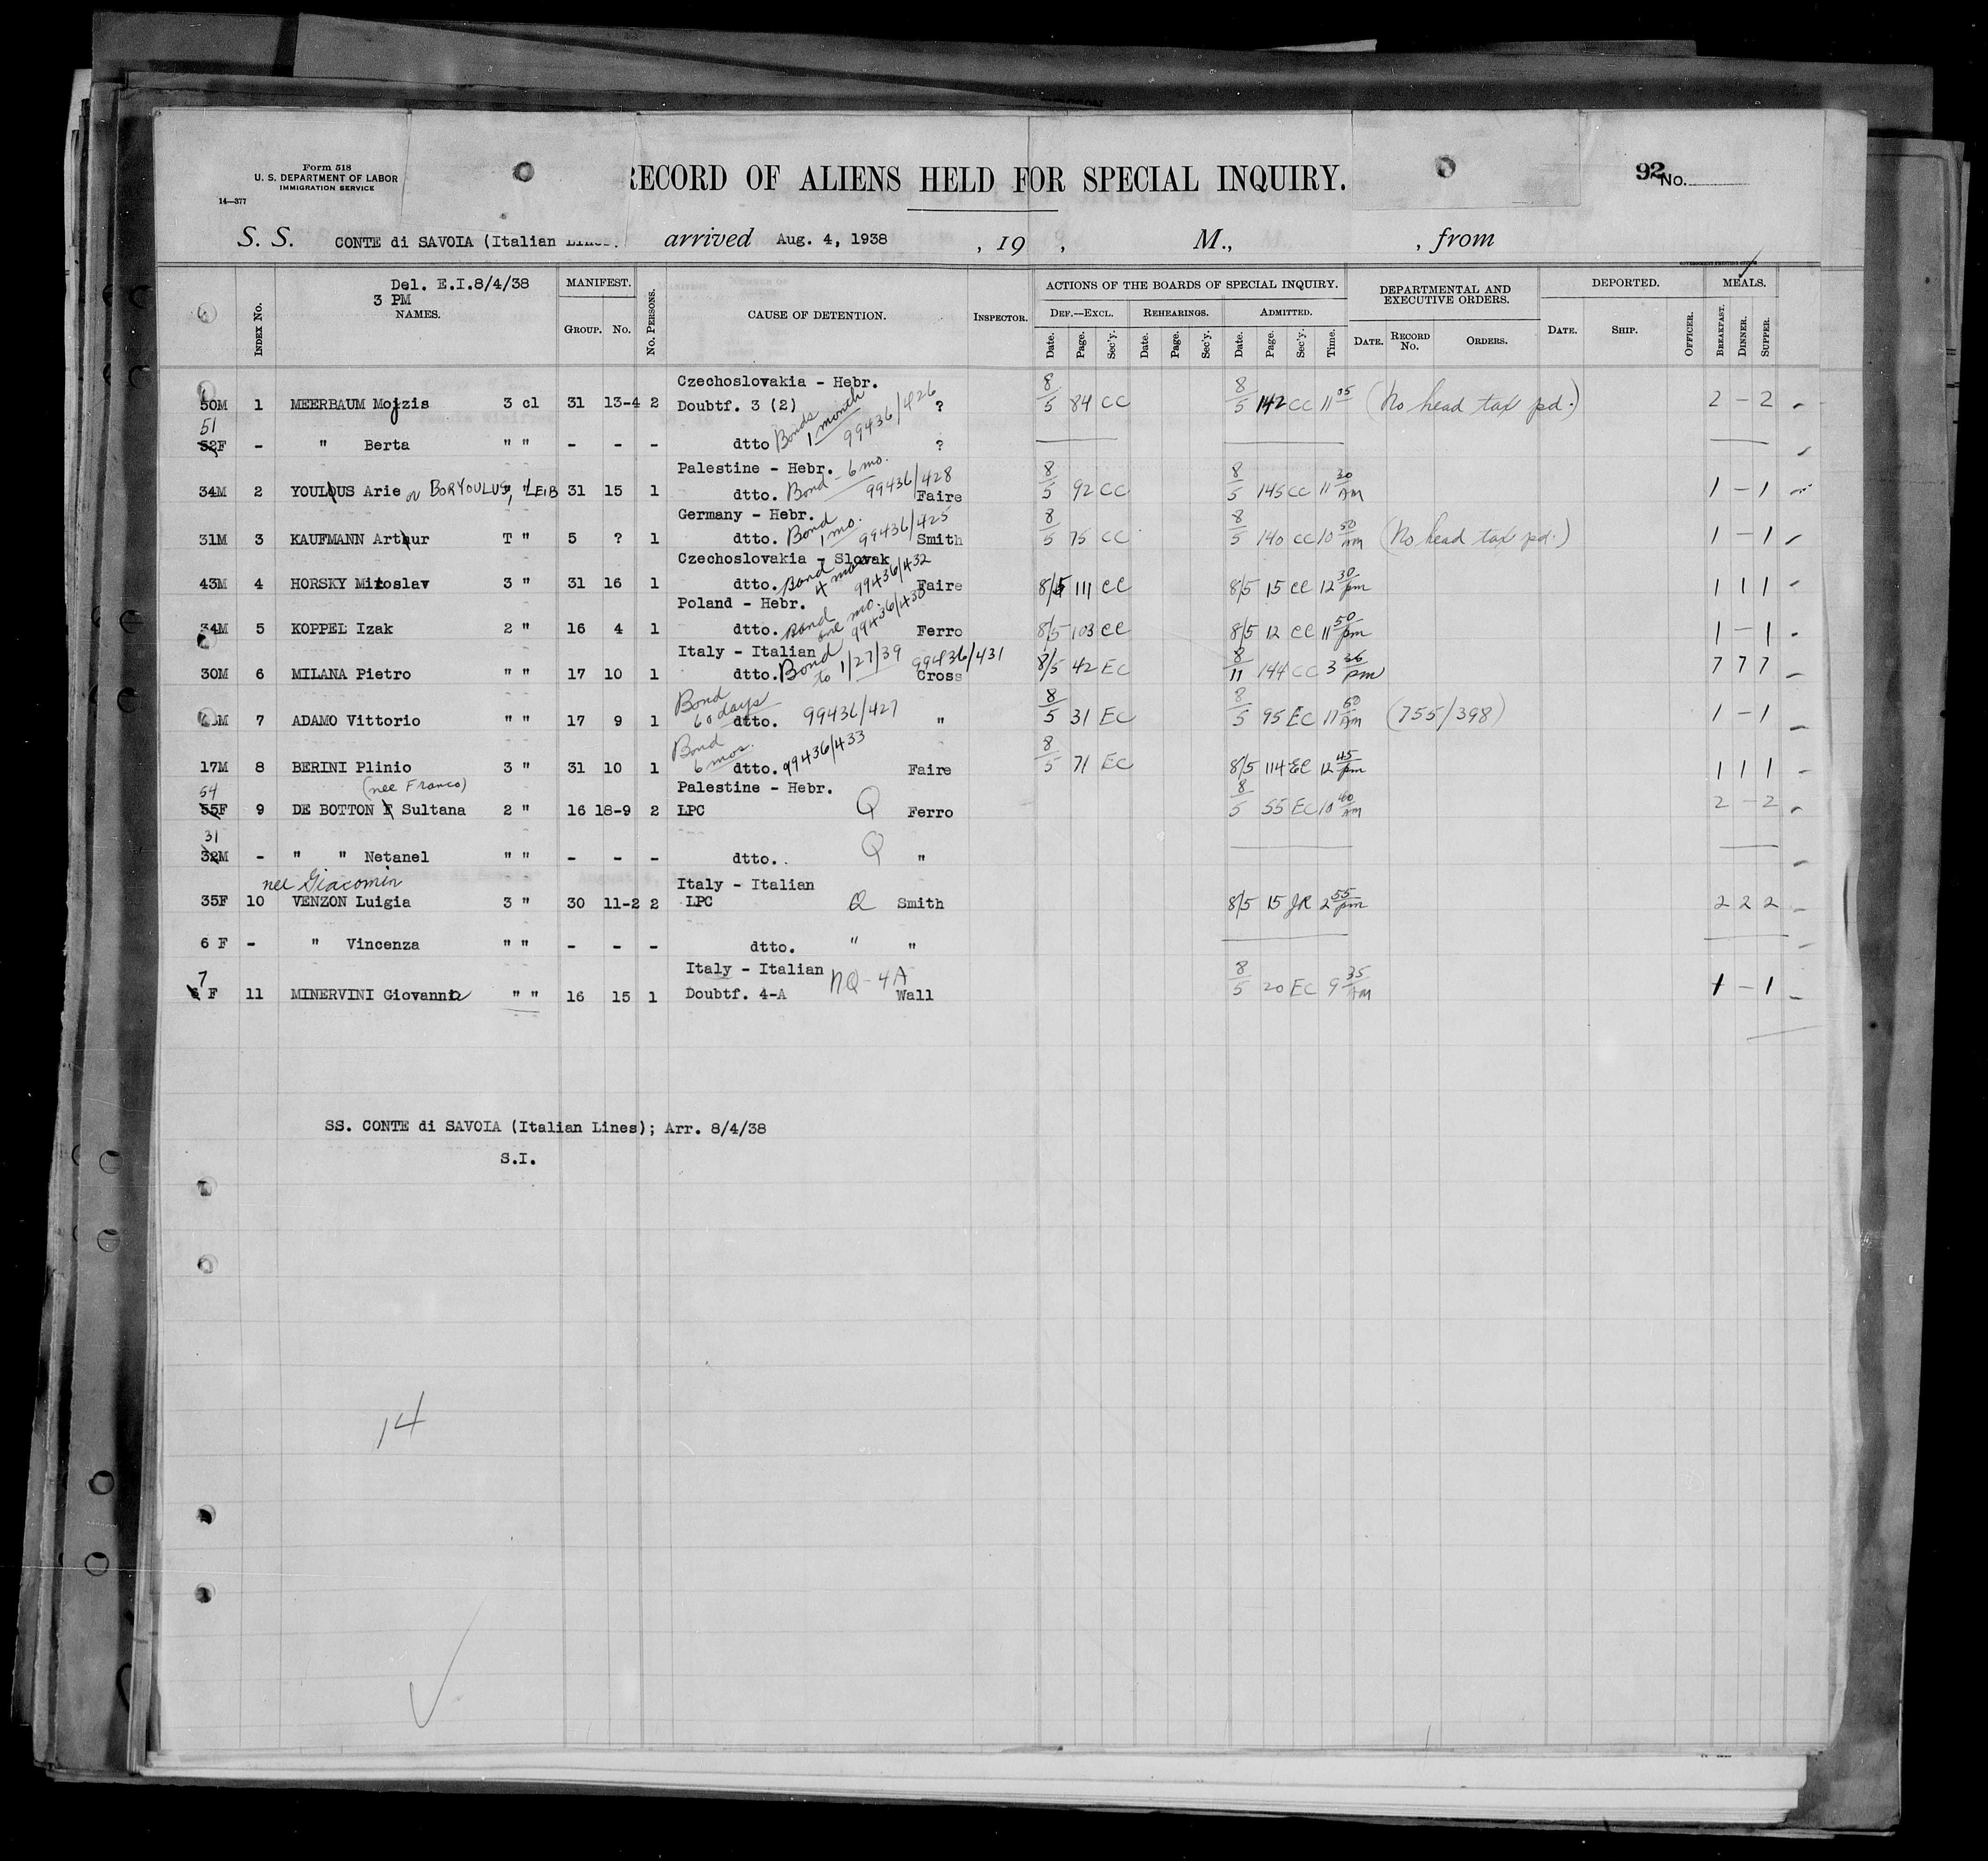 Form 518
U. S. DEPARTMENT OF LABOR
IMMIGRATION SERVICE
14—377
RECORD OF ALIENS HELD FOR SPECIAL INQUIRY.
92 No.
S. S. CONTE di SAVOIA (Italian Lines) arrived Aug. 4, 1938 , 19 , M., , from
Del. E.I.8/4/38
3 PM
INDEX No. NAMES. MANIFEST. GROUP. No. No. PERSONS. CAUSE OF DETENTION. INSPECTOR. ACTIONS OF THE BOARDS OF SPECIAL INQUIRY. DEPARTMENTAL AND EXECUTIVE ORDERS. DEPORTED. MEALS.
DEF.—EXCL. REHEARINGS. ADMITTED.
Date. Page. Sec'y. Date. Page. Sec'y. Date. Page. Sec'y. Time. DATE. RECORD No. ORDERS. DATE. SHIP. OFFICER. BREAKFAST. DINNER. SUPPER.
Czechoslovakia - Hebr.
50M 1 MEERBAUM Mojzis 3 cl 31 13-4 2 Doubtf. 3 (2) Bonds 1 month 99436/426 ? 8/5 84 CC 8/5 142 CC 11 05 (No head tax pd.) 2 - 2
51
52F - " Berta " " - - - dtto ?
Palestine - Hebr.
34M 2 YOULOUS Arie or BORYOULUS, LEIB " 31 15 1 dtto. Bond - 6 mo. 99436/428 Faire 8/5 92 CC 8/5 145 CC 11 30 AM 1 - 1
Germany - Hebr.
31M 3 KAUFMANN Arthur T " 5 ? 1 dtto. Bond 1 mo. 99436/425 Smith 8/5 75 CC 8/5 140 CC 10 50 AM (No head tax pd.) 1 - 1
Czechoslovakia - Slovak
43M 4 HORSKY Miroslav 3 " 31 16 1 dtto. Bond 4 mos 99436/432 Faire 8/5 111 CC 8/5 15 CC 12 30 pm 1 1 1
Poland - Hebr.
34M 5 KOPPEL Izak 2 " 16 4 1 dtto. Bond one mo. 99436/430 Ferro 8/5 103 CC 8/5 12 CC 11 50 pm 1 - 1
Italy - Italian
30M 6 MILANA Pietro " " 17 10 1 dtto. Bond to 1/27/39 99436/431 Cross 8/5 42 EC 8/11 144 CC 3 36 pm 7 7 7
M 7 ADAMO Vittorio " " 17 9 1 Bond 60 days dtto. 99436/427 " 8/5 31 EC 8/5 95 EC 11 AM (755/398) 1 - 1
17M 8 BERINI Plinio 3 " 31 10 1 Bond 6 mos. dtto. 99436/433 Faire 8/5 71 EC 8/5 114 EC 12 45 pm 1 1 1
54 (nee Franco) Palestine - Hebr.
55F 9 DE BOTTON F Sultana 2 " 16 18-9 2 LPC Q Ferro 8/5 55 EC 10 40 AM 2 - 2
31
32M - " " Netanel " " - - - dtto. Q "
nee Giacomin Italy - Italian
35F 10 VENZON Luigia 3 " 30 11-2 2 LPC Q Smith 8/5 15 JR 2 55 pm 2 2 2
6 F - " Vincenza " " - - - dtto. " "
7 Italy - Italian
6 F 11 MINERVINI Giovanna " " 16 15 1 Doubtf. 4-A NQ-4A Wall 8/5 20 EC 9 35 AM 1 - 1
SS. CONTE di SAVOIA (Italian Lines); Arr. 8/4/38
S.I.
14